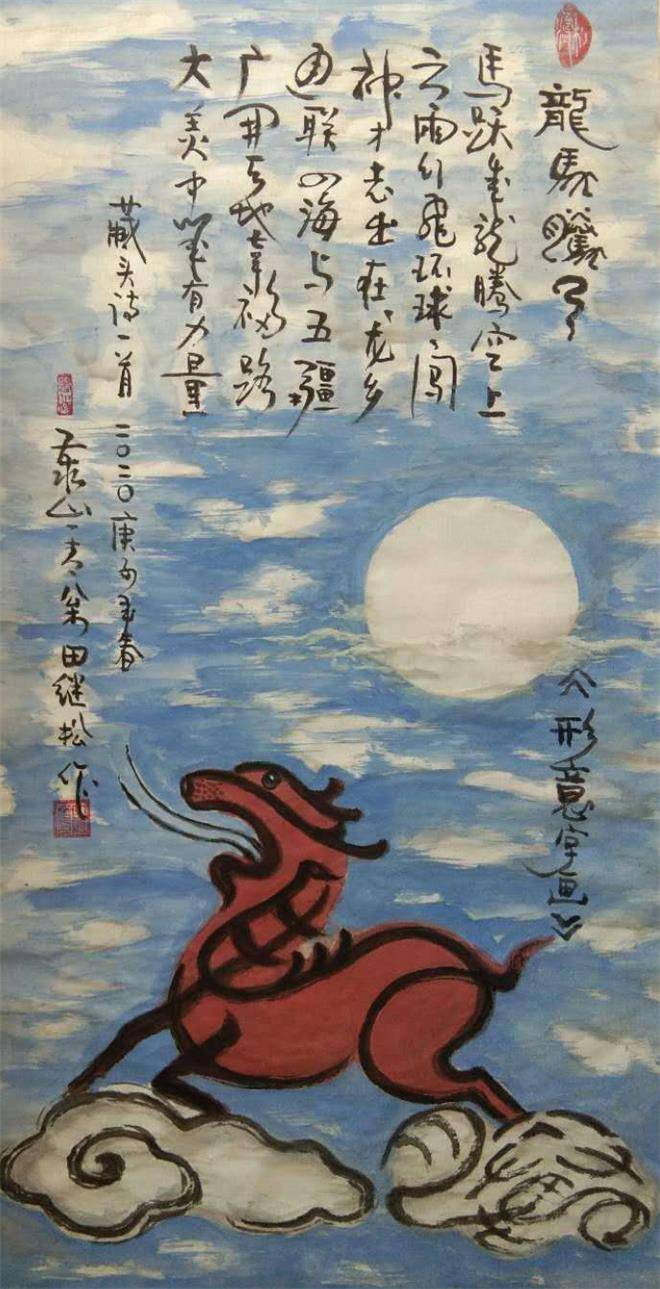 龍馬騰
馬跃龙腾空上
云雨行飛环球闯
神才志士在龙乡
通联四海与五疆
广开天地幸福路
大美中华有力量
藏头诗一首
二〇二〇庚子春
泰山翁田继松作
《形意字画》